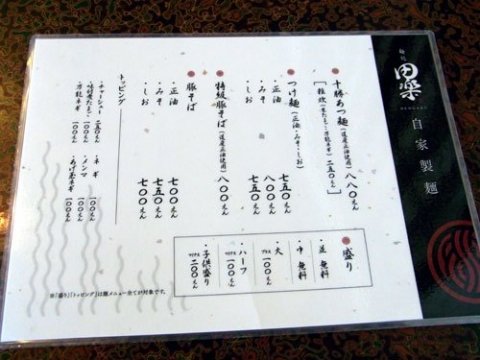 麺処
田楽
DENGAKU
自家製麺
十勝あつ麺(道産正油使用) 八八〇えん
つけ麺(正油・みそ・しお)
・正油 七五〇えん
・みそ 八〇〇えん
・しお 七五〇えん
特級豚そば(道産正油使用) 八〇〇えん
豚そば
・正油 七〇〇えん
・みそ 七五〇えん
・しお 七〇〇えん
トッピング
・チャーシュー 二五〇えん
・味付煮たまご 一〇〇えん
・万能ネギ 一〇〇えん
・ネギ 一〇〇えん
・メンマ 一〇〇えん
・あげ玉ネギ 一〇〇えん
盛り
・並 無料
・中 無料
・大 プラス 一〇〇えん
・ハーフ マイナス 一〇〇えん
・子供盛り マイナス 二〇〇えん
※「盛り」「トッピング」は麺メニュー全てが対象です。